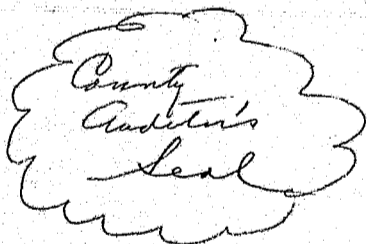 County
Auditor's
Seal